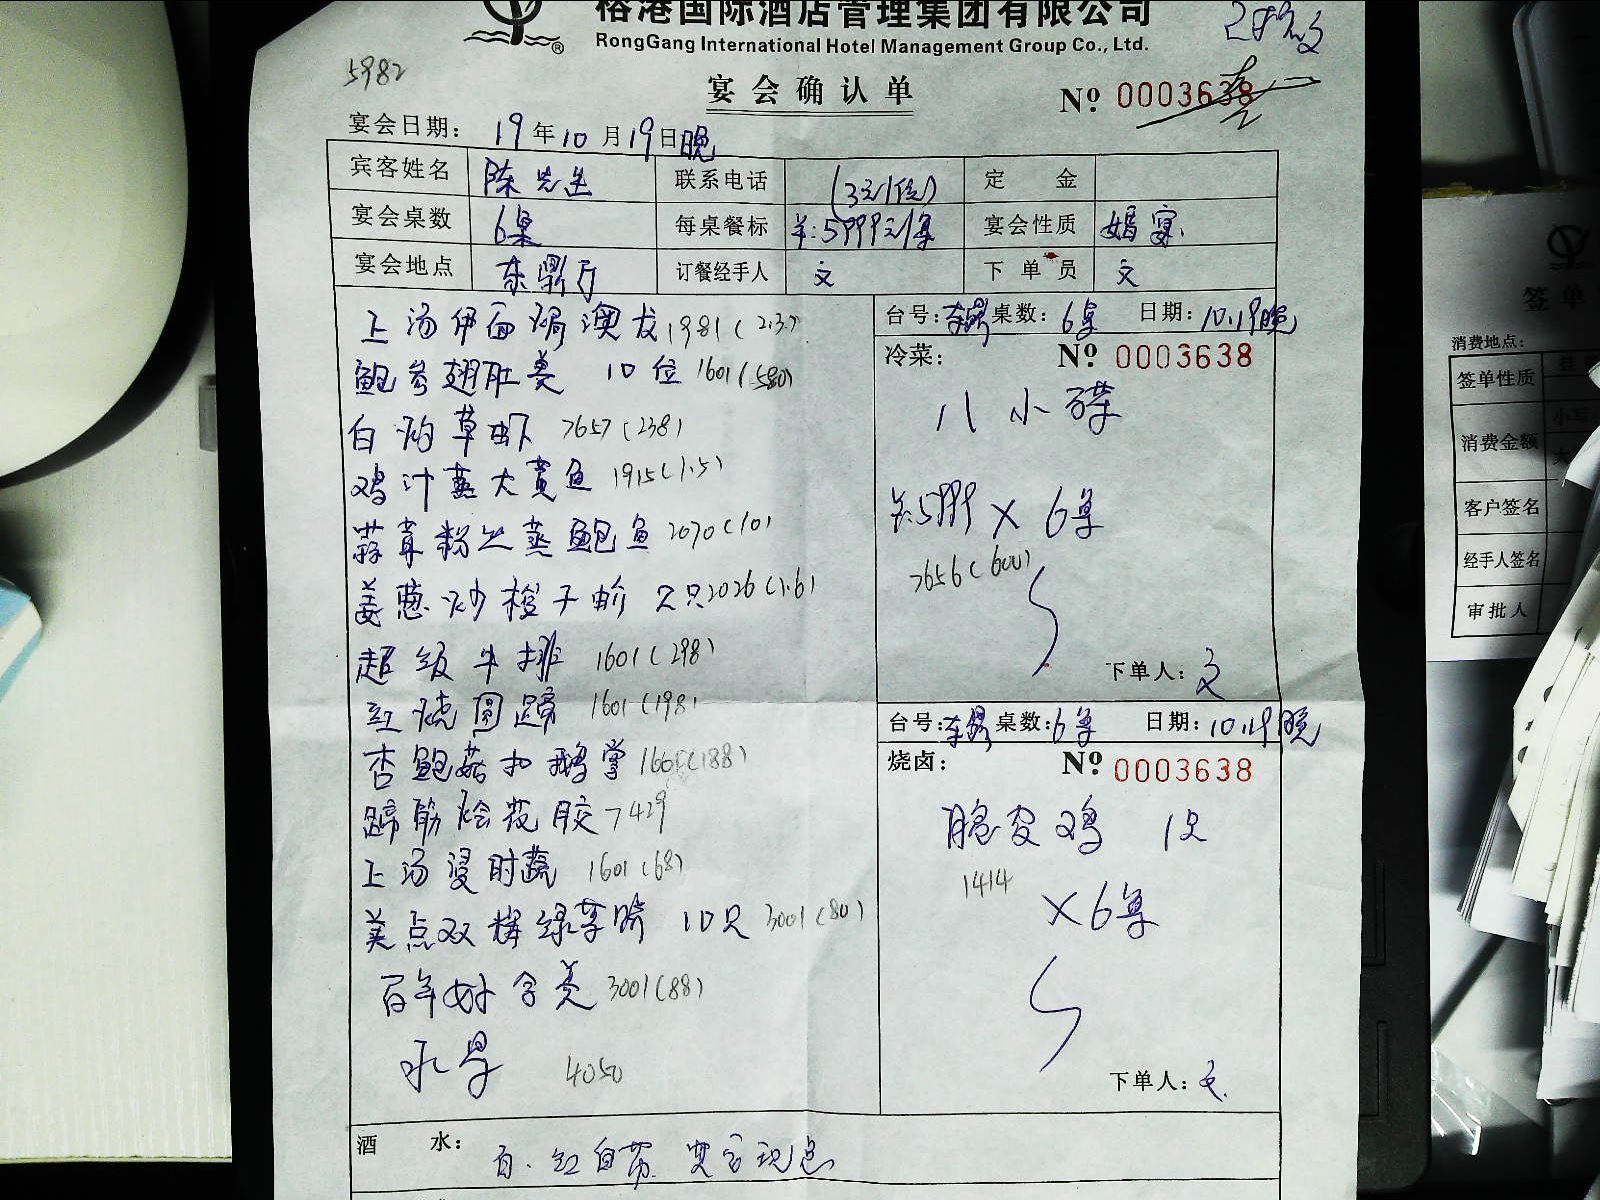 榕港国际酒店管理集团有限公司
RongGang International Hotel Management Group Co., Ltd.
5982
宴会确认单
№ 0003638
宴会日期： 19年10月19日晚
宾客姓名 陈先生 联系电话 (3元/位) 定金
宴会桌数 6桌 每桌餐标 羊:5999元/桌 宴会性质 婚宴
宴会地点 东鼎厅 订餐经手人 文 下单员 文
上汤伊面焗澳龙 1981(2.3)
鲍参翅肚羹 10位 1601(580)
白灼草虾 7657(238)
鸡汁蒸大黄鱼 1915(1.5)
蒜茸粉丝蒸鲍鱼 2070(10)
姜葱炒梭子蟹 2只 2026(1.6)
超级牛排 1601(298)
红烧圆蹄 1601(198)
杏鲍菇扣鹅掌 1601(188)
蹄筋烩花胶 7429
上汤浸时蔬 1601(68)
美点双辉绿芋娇 10只 3001(80)
百年好合羹 3001(88)
水果 4050
台号：东鼎 桌数：6桌 日期：10.19晚
冷菜： № 0003638
八小碟
5999 × 6桌
7656(600)
下单人：文
台号：东鼎 桌数：6桌 日期：10.19晚
烧卤： № 0003638
脆皮鸡 1只
1414
×6桌
下单人：文
酒水：白.红自带 宾客现点
签单
消费地点：
签单性质
消费金额
小写
大
客户签名
经手人签名
审批人